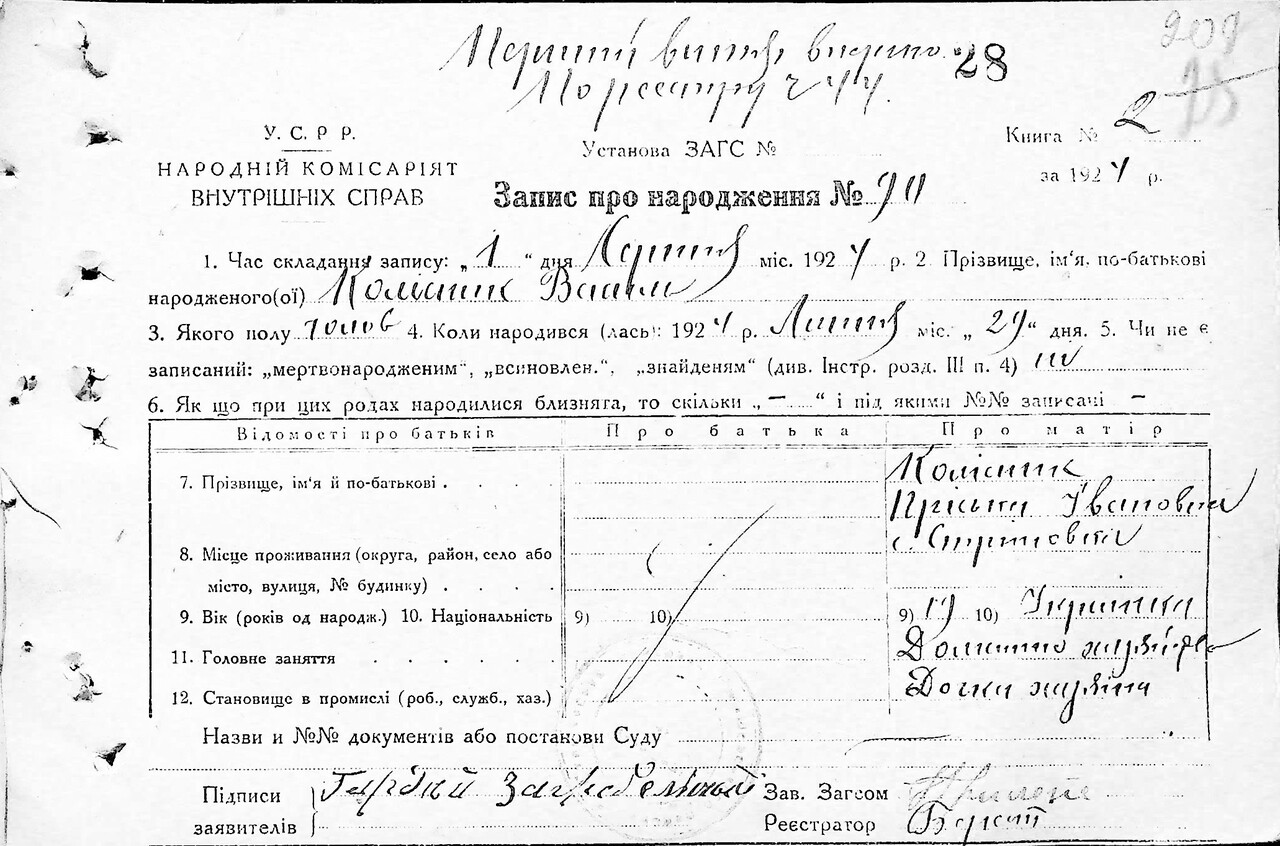 Перший витяг видано
По реєстру ч 44.
28
209
У. С. Р. Р.
НАРОДНІЙ КОМІСАРІЯТ
ВНУТРІШНІХ СПРАВ
Установа ЗАГС №
Книга № 2
за 1924 р.
Запис про народження № 90
1. Час складання запису: „ 1 “ дня Серпня міс. 1924 р. 2 Прізвище, ім‘я, по-батькові
народженого(ої) Колісник
3. Якого полу 4. Коли народився (лась): 1924 р. Липня міс. „ 29 “ дня. 5. Чи не є
записаний: „мертвонародженим“, „всиновлен.“, „знайденям“ (див. Інстр. розд. III п. 4) ні
6. Як що при цих родах народилися близнята, то скільки „ — “ і під якими №№ записані —
Відомості про батьків Про батька Про матір
7. Прізвище, ім‘я й по-батькові . . . . Колісник
Пріська Івановна
8. Місце проживання (округа, район, село або с.
місто, вулиця, № будинку) . . . .
9. Вік (років од народж.) 10. Національність 9) 10) 9) 19 10) Українка
11. Головне заняття . . . . . . Домашнє
12. Становище в промислі (роб., служб., хаз.) Дочка хазяїна
Назви и №№ документів або постанови Суду
Підписи Зав. Загсом
заявителів Реєстратор